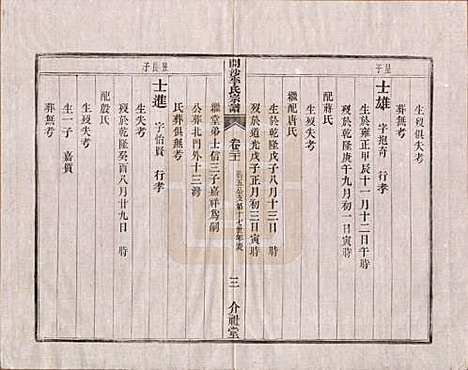 生歿俱失考
葬無考
呈子
士雄 字抱奇 行孝
生於雍正甲辰十一月十二日午時
歿於乾隆庚午九月初一日寅時
配蔣氏
生於乾隆戊子八月十三日
歿於道光戊子正月初三日寅時
繼配唐氏
繼堂弟士信三子嘉祥爲嗣
公葬北門外十三灣
氏葬俱無考
開沙李氏宗譜 卷三
三 介祉堂
呈長子
士進 字怡賢 行孝
生失考
歿於乾隆癸酉八月廿九日 時
配殷氏
生歿失考
生一子 嘉質
葬無考